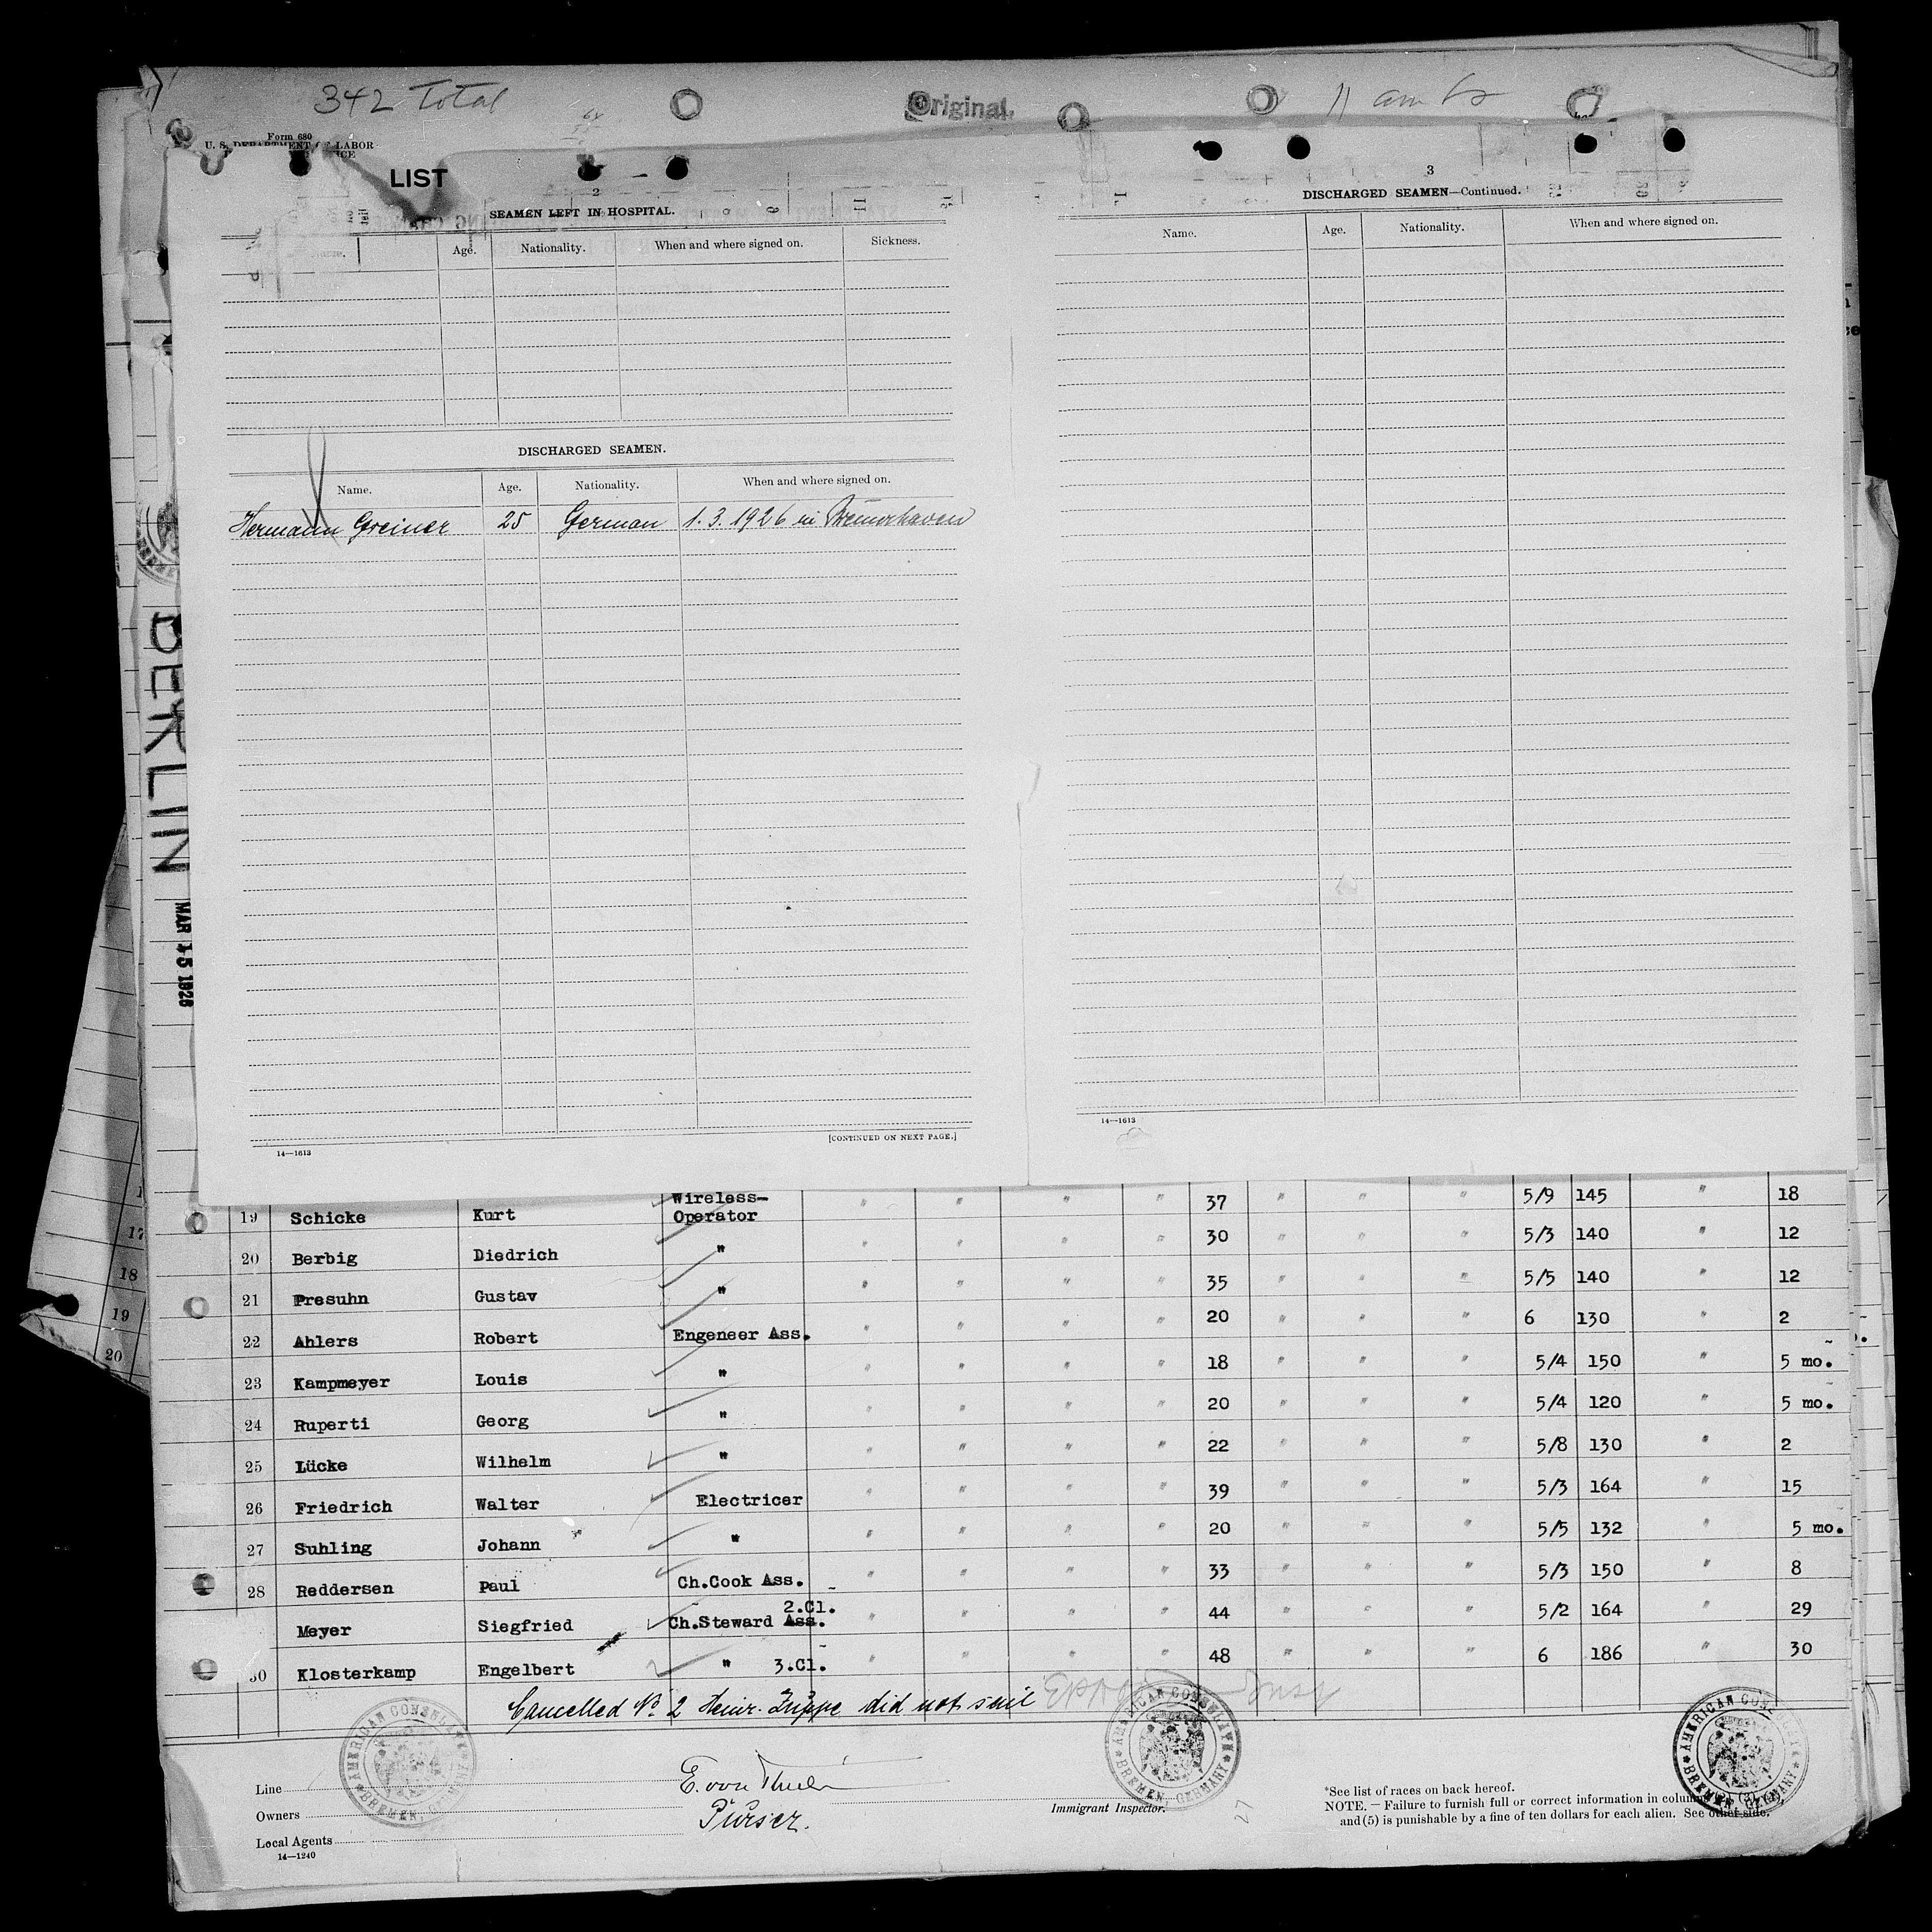 342 Total
Original.
Form 680
U. S. DEPARTMENT OF LABOR
LIST
2
SEAMEN LEFT IN HOSPITAL.
Name. Age. Nationality. When and where signed on. Sickness.
DISCHARGED SEAMEN.
Name. Age. Nationality. When and where signed on.
Hermann Greiner 25 German 1. 3. 1926 in Bremerhaven
[CONTINUED ON NEXT PAGE.]
14—1613
3
DISCHARGED SEAMEN—Continued.
Name. Age. Nationality. When and where signed on.
14—1613
BERLIN
MAR 15 1926
17
18
19
20
Wireless-
19 Schicke Kurt Operator " " " " 37 " " " 5/9 145 " 18
20 Berbig Diedrich " " " " " 30 " " " 5/3 140 " 12
21 Presuhn Gustav " " " " " 35 " " " 5/5 140 " 12
22 Ahlers Robert Engeneer Ass. " " " " 20 " " " 6 130 " 2
23 Kampmeyer Louis " " " " " 18 " " " 5/4 150 " 5 mo.
24 Ruperti Georg " " " " " 20 " " " 5/4 120 " 5 mo.
25 Lücke Wilhelm " " " " " 22 " " " 5/8 130 " 2
26 Friedrich Walter Electricer " " " " 39 " " " 5/3 164 " 15
27 Suhling Johann " " " " " 20 " " " 5/5 132 " 5 mo.
28 Reddersen Paul Ch.Cook Ass. " " " " 33 " " " 5/3 150 " 8
2.Cl.
Meyer Siegfried Ch.Steward Ass. " " " " 44 " " " 5/2 164 " 29
30 Klosterkamp Engelbert " 3.Cl. " " " " 48 " " " 6 186 " 30
Cancelled No. 2 Heinr. did not sail
AMERICAN CONSULATE BREMEN, GERMANY
AMERICAN CONSULATE BREMEN, GERMANY
AMERICAN CONSULATE BREMEN, GERMANY
Line
Owners
Local Agents
14—1240
E. von
Purser.
Immigrant Inspector.
27
*See list of races on back hereof.
NOTE.—Failure to furnish full or correct information in columns (2), (3),
and (5) is punishable by a fine of ten dollars for each alien. See other side.